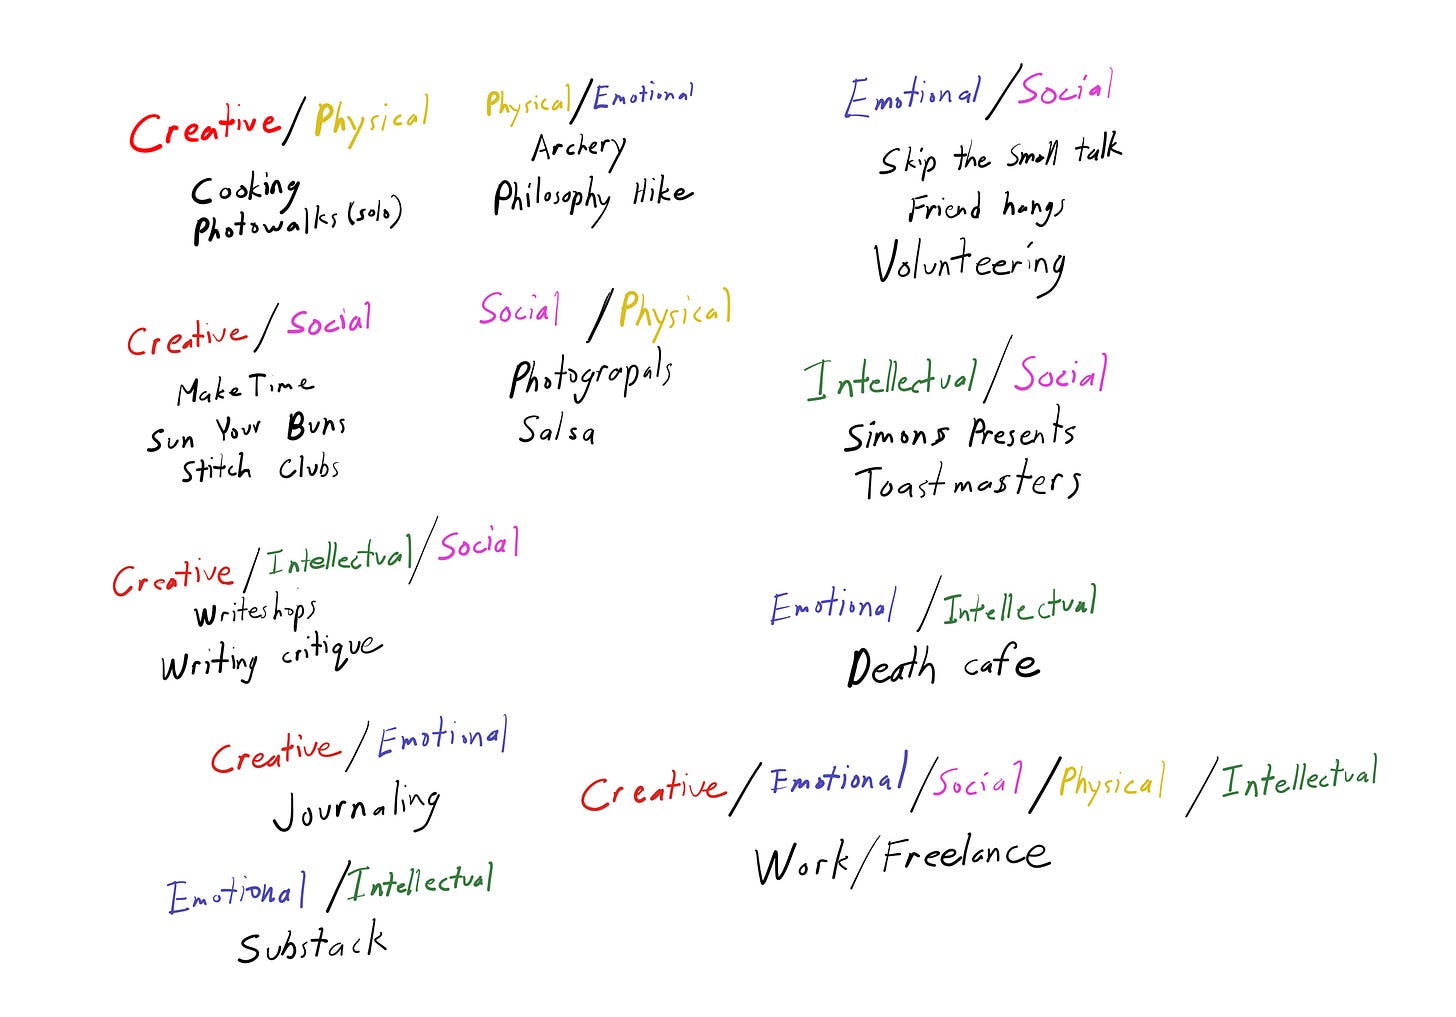 Creative/Physical
Cooking
Photowalks (solo)
Physical/Emotional
Archery
Philosophy Hike
Emotional/Social
Skip the small talk
Friend hangs
Volunteering
Creative/Social
Make Time
Sun Your Buns
Stitch Clubs
Social/Physical
Photograpals
Salsa
Intellectual/Social
Simons Presents
Toastmasters
Creative/Intellectual/Social
Writeshops
Writing critique
Emotional/Intellectual
Death cafe
Creative/Emotional
Journaling
Creative/Emotional/Social/Physical/Intellectual
Work/Freelance
Emotional/Intellectual
Substack